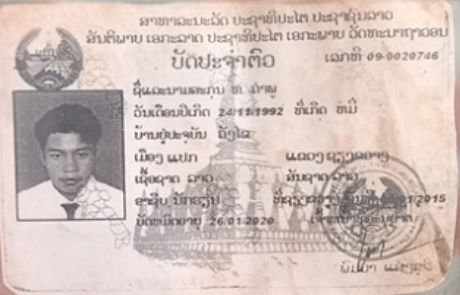 ສາທາລະນະລັດ ປະຊາທິປະໄຕ ປະຊາຊົນລາວ
ສັນຕິພາບ ເອກະລາດ ປະຊາທິປະໄຕ ເອກະພາບ ວັດທະນາຖາວອນ
ບັດປະຈຳຕົວ
ເລກທີ 09-0020746
ຊື່ແລະນາມສະກຸນ ທ. ຄຳພູ
ວັນເດືອນປີເກີດ 24/11/1992 ທີ່ເກີດ
ບ້ານຢູ່ປະຈຸບັນ
ເມືອງ ແປກ ແຂວງ ຊຽງຂວາງ
ເຊື້ອຊາດ ລາວ ສັນຊາດ ລາວ
ອາຊີບ ນັກຮຽນ ທີ່ຊຽງຂວາງ 2015
ບັດໝົດອາຍຸ 26.01.2020